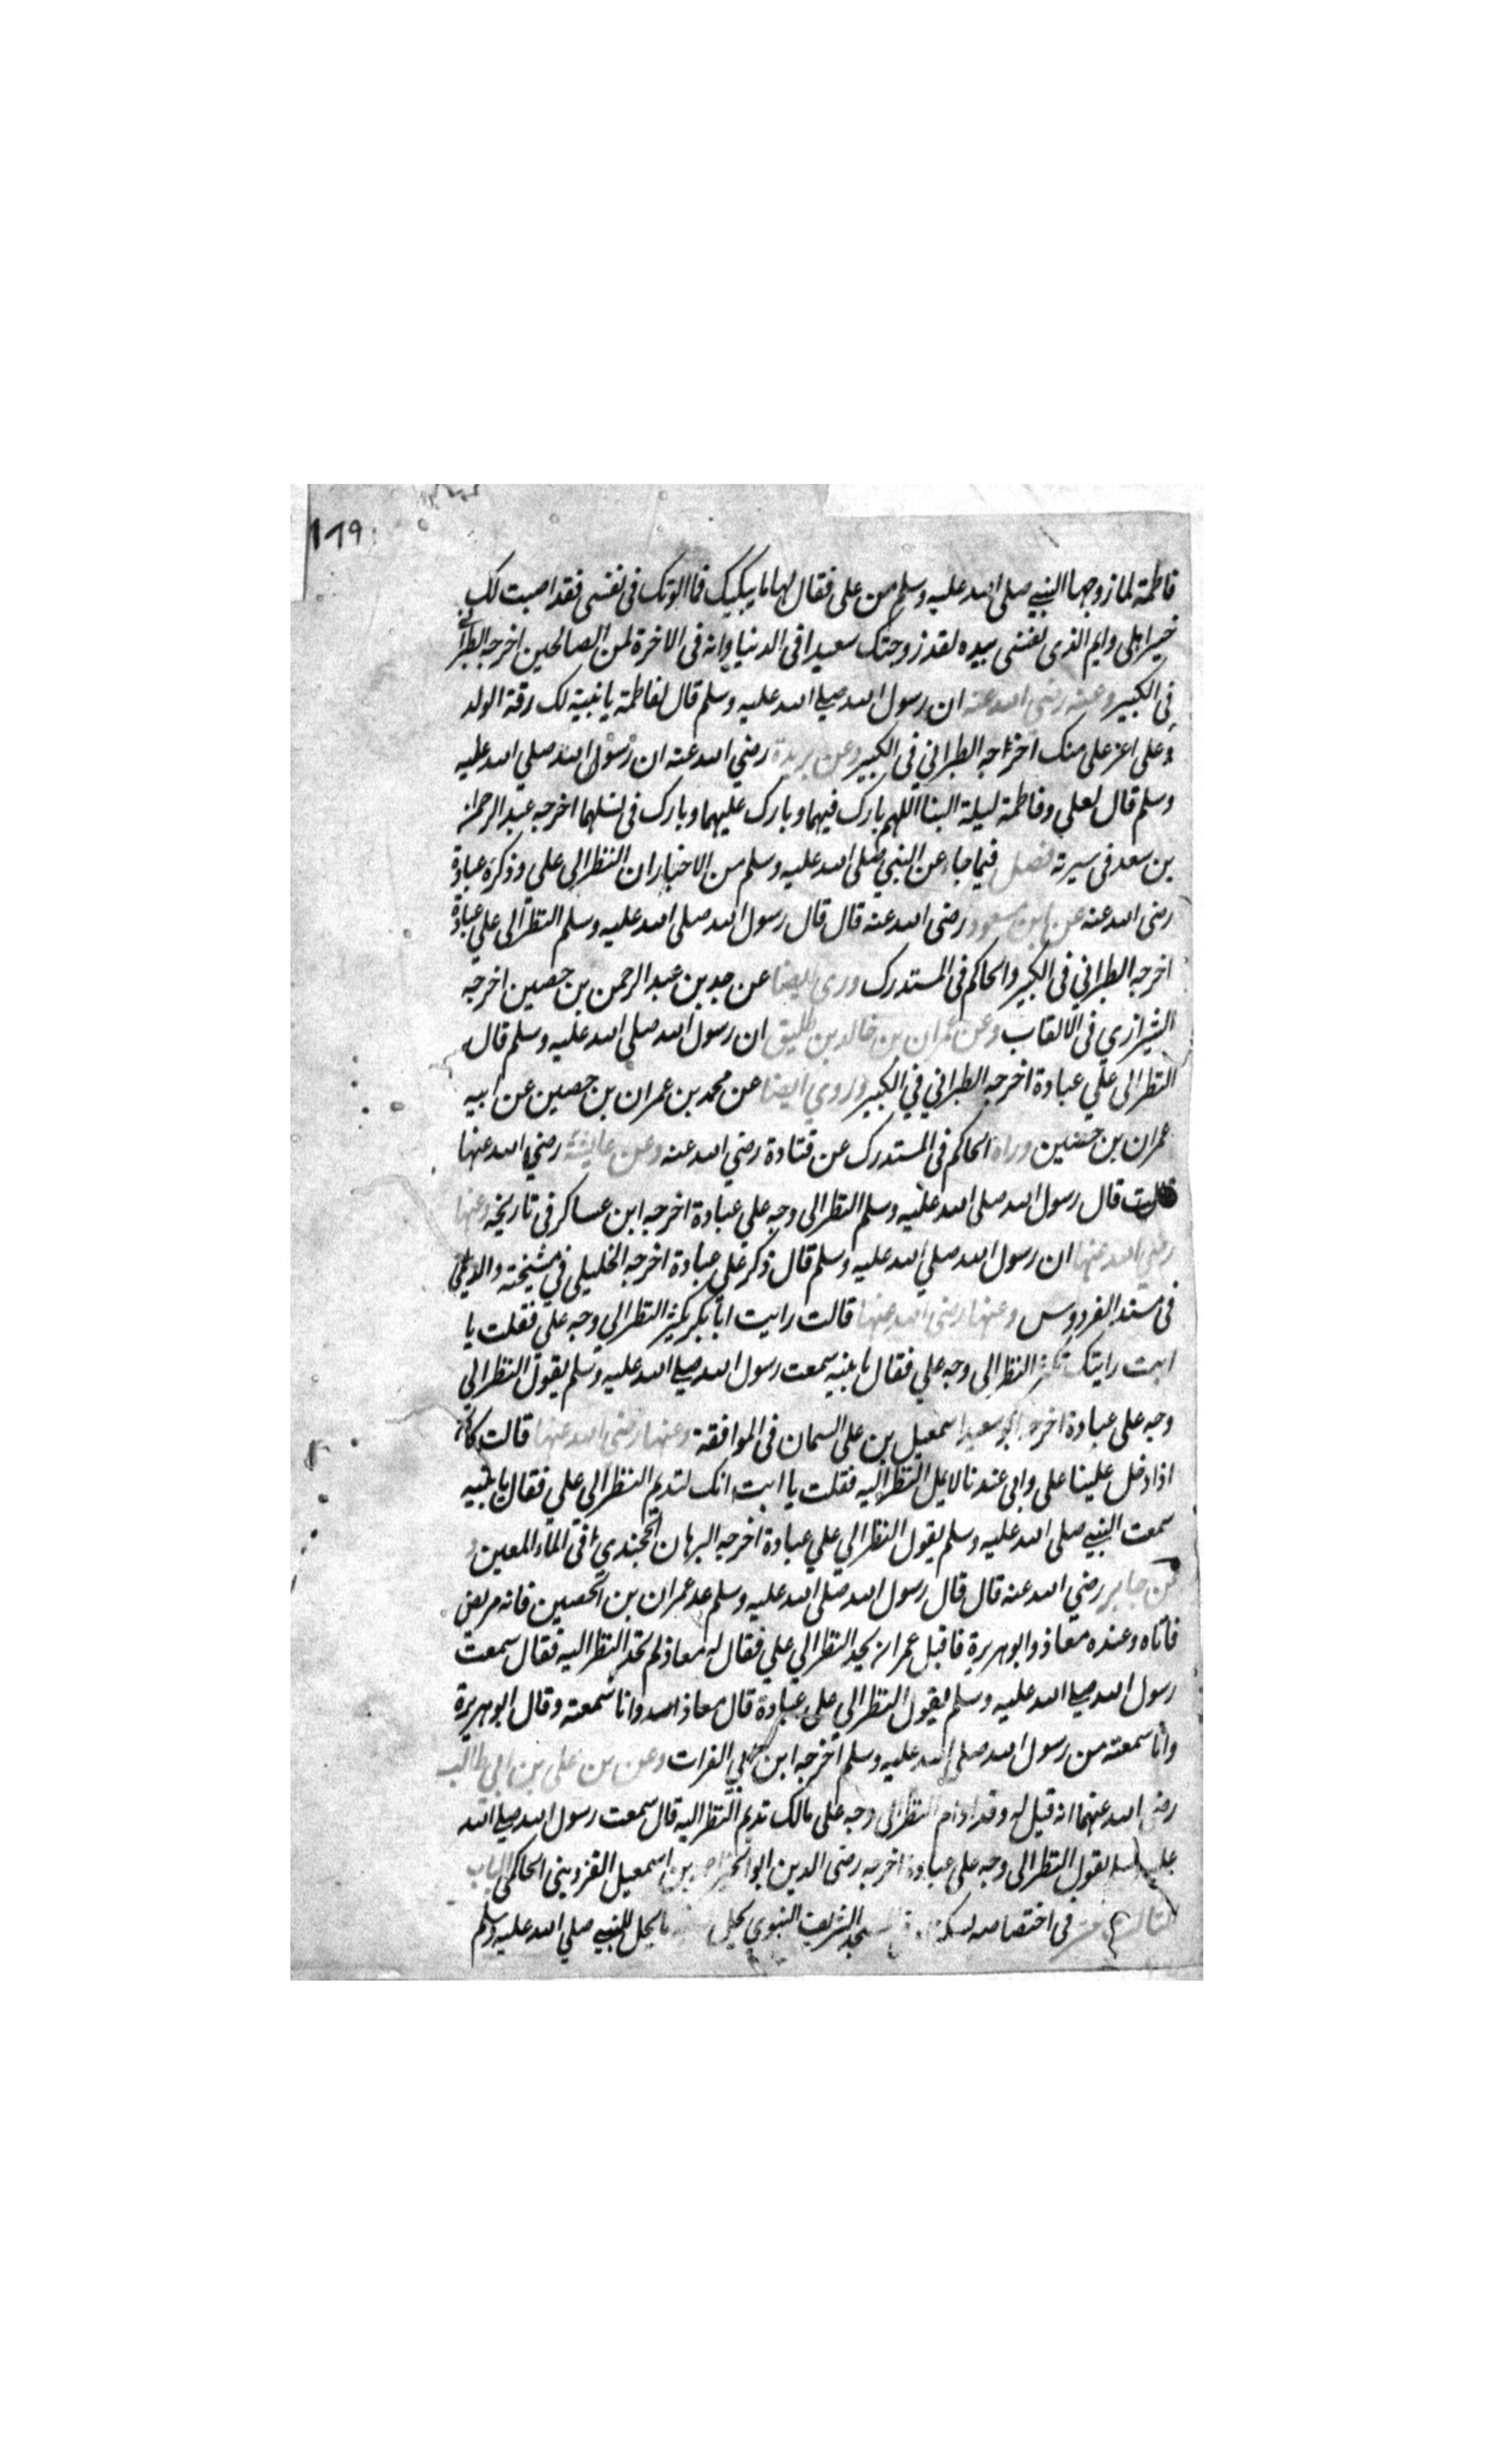 ١٦٩
فاطمة لما زوجها النبي صلى الله عليه وسلم من على فقال لها ما يبكيك فما الوتك فى نفسى فقد اصبت لك
خير اهلى وايم الذى نفسى بيده لقد زوجتك سعيدا فى الدنيا وانه فى الاخرة لمن الصالحين اخرجه الطبرانى
فى الكبير وعنه رضى الله عنه ان رسول الله صلى الله عليه وسلم قال لفاطمة يا بنية لك رقة الولد
وعلى اعز على منك اخرجه الطبراني في الكبير وعن بريدة رضي الله عنه ان رسول الله صلي الله عليه
وسلم قال لعلي وفاطمة ليلة البنا اللهم بارك فيهما وبارك عليهما وبارك فى نسلهما اخرجه عبد الرحمن
بن سعد فى سيرته فصل فيما جاء عن النبي صلى الله عليه وسلم من الاخبار ان النظر الى على وذكره عبادة
رضى الله عنه عن ابن مسعود رضى الله عنه قال قال رسول الله صلى الله عليه وسلم النظر الى علي عبادة
اخرجه الطبراني فى الكبير والحاكم فى المستدرك وروى ايضا عن عبد الرحمن بن حصين اخرجه
الشيرازي فى الالقاب وعن عمران بن خالد بن طليق ان رسول الله صلي الله عليه وسلم قال
النظر الى علي عبادة اخرجه الطبراني في الكبير وروي ايضا عن محمد بن عمران بن حصين عن ابيه
عمران بن حصين وراه الحاكم فى المستدرك عن قتادة رضي الله عنه وعن عايشة رضي الله عنها
قالت قال رسول الله صلى الله عليه وسلم النظر الى وجه علي عبادة اخرجه ابن عساكر فى تاريخه وعنها
رضي الله عنها ان رسول الله صلي الله عليه وسلم قال ذكر على عبادة اخرجه الخليلي في مشيخته والديلمي
فى مسند الفردوس وعنها رضى الله عنها قالت رايت ابا بكر يكثر النظر الي وجه علي فقلت يا
ابت رايتك تكثر النظر الى وجه علي فقال يا بنيه سمعت رسول الله صلي الله عليه وسلم يقول النظر الى
وجه على عبادة اخرجه ابو سعيد اسمعيل بن على السمان فى الموافقة وعنها رضى الله عنها قالت كان
اذا دخل علينا على وابى عندنا لا يمل النظر اليه فقلت يا ابت انك لتديم النظر الى علي فقال يا بنيه
سمعت النبي صلى الله عليه وسلم يقول النظر الي علي عبادة اخرجه البرهان الخجندي فى الماء المعين
عن جابر رضي الله عنه قال قال رسول الله صلى الله عليه وسلم عد عمران بن الحصين فانه مريض
فاتاه وعنده معاذ وابو هريرة فاقبل عمران يحد النظر الي علي فقال له معاذ لم تحد النظر اليه فقال سمعت
رسول الله صلي الله عليه وسلم يقول النظر الي على عبادة قال معاذ وانا سمعته وقال ابو هريرة
وانا سمعته من رسول الله صلى الله عليه وسلم اخرجه ابن ابي الفرات وعن بن على بن ابي طالب
رضى الله عنهما انه قيل له وقد ادام النظر الى وجه على مالك تديم النظر اليه قال سمعت رسول الله صلي الله
عليه وسلم يقول النظر الى وجه على عبادة اخرجه رضى الدين ابو الخير احمد بن اسمعيل القزوينى الحاكمى الباب
الثالث عشر فى اختصاصه المسجد الشريف النبوي يحل ما يحل للنبي صلي الله عليه وسلم